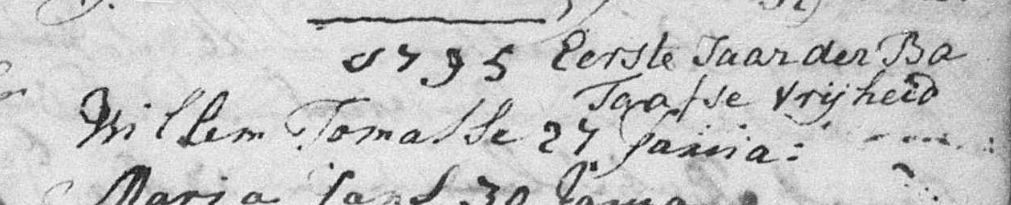 1795 Eerste Jaar der Ba
Taafse vrijheid
Willem Tomasse 27 Janua:
Maria Jans 30